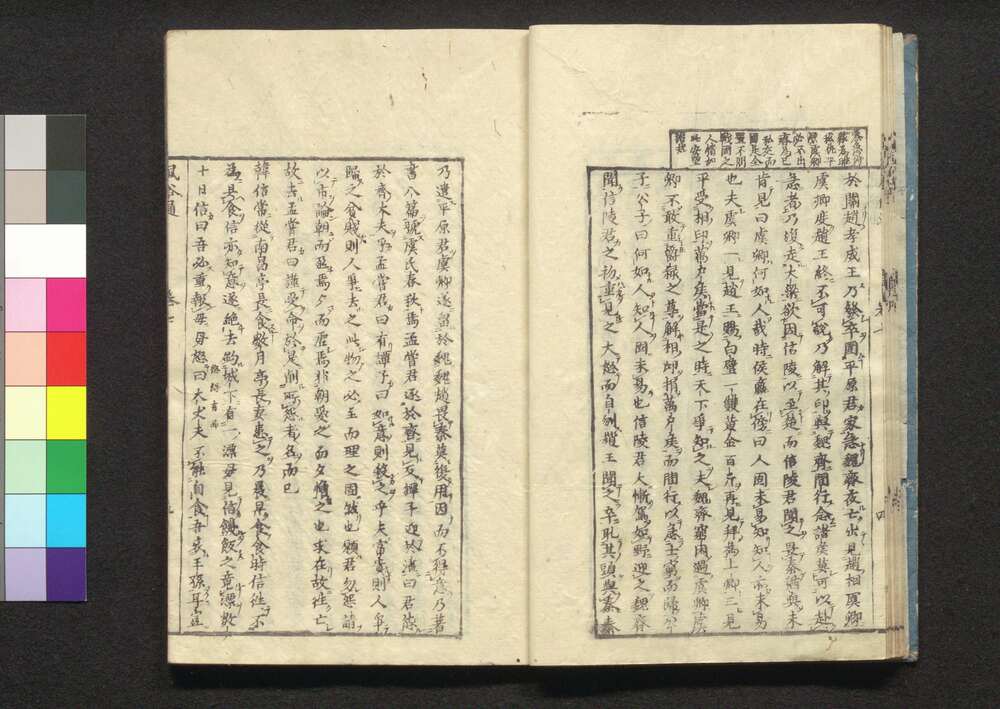 於關趙孝成王乃發卒圍平原君家急魏齊夜亡出見趙相虞卿
虞卿度趙王終不可說乃解其印與魏齊間行念諸侯莫可以赴
急者乃復走大梁欲因信陵以至楚而信陵君聞之畏秦猶與未
肯見曰虞卿何如人哉時侯嬴在傍曰人固未易知知人亦未易
也夫虞卿一見趙王賜白璧一雙黃金百斤再見拜為上卿三見
平受相印萬戶侯當是之時天下爭知之夫魏齊窮困過虞卿虞
卿不敢重爵祿之尊解相印捐萬戶侯而間行以急士窮而歸公
子公子曰何如人知人固未易也信陵君大慚駕如野迎之魏齊
聞信陵君之初重見之大怒而自刎趙王聞之卒取其頭與秦秦
乃遣平原君虞卿遂留於魏魏趙畏秦莫復用因而不得意乃著
書八篇號虞氏春秋焉孟嘗君逐於齊見反譚子迎於澅曰君怨
於齊大夫乎孟嘗君曰有譚子曰如意則殺之乎夫富貴則人爭
歸之貧賤則人爭去之此物之必至而理之固然也願君勿怨請
以市論朝而盈焉夕而虛焉非朝愛之而夕憎之也求在故往亡
故去孟嘗君曰謹受命於是削所怨者名而已
韓信常從南昌亭長食數月亭長妻患之乃晨早食食時信往不
為具食信亦知意遂絕去釣城下有一漂母見信饑飯之竟漂數
十日信曰吾必重報母母怒曰大丈夫不能自食吾哀王孫耳豈
風俗通